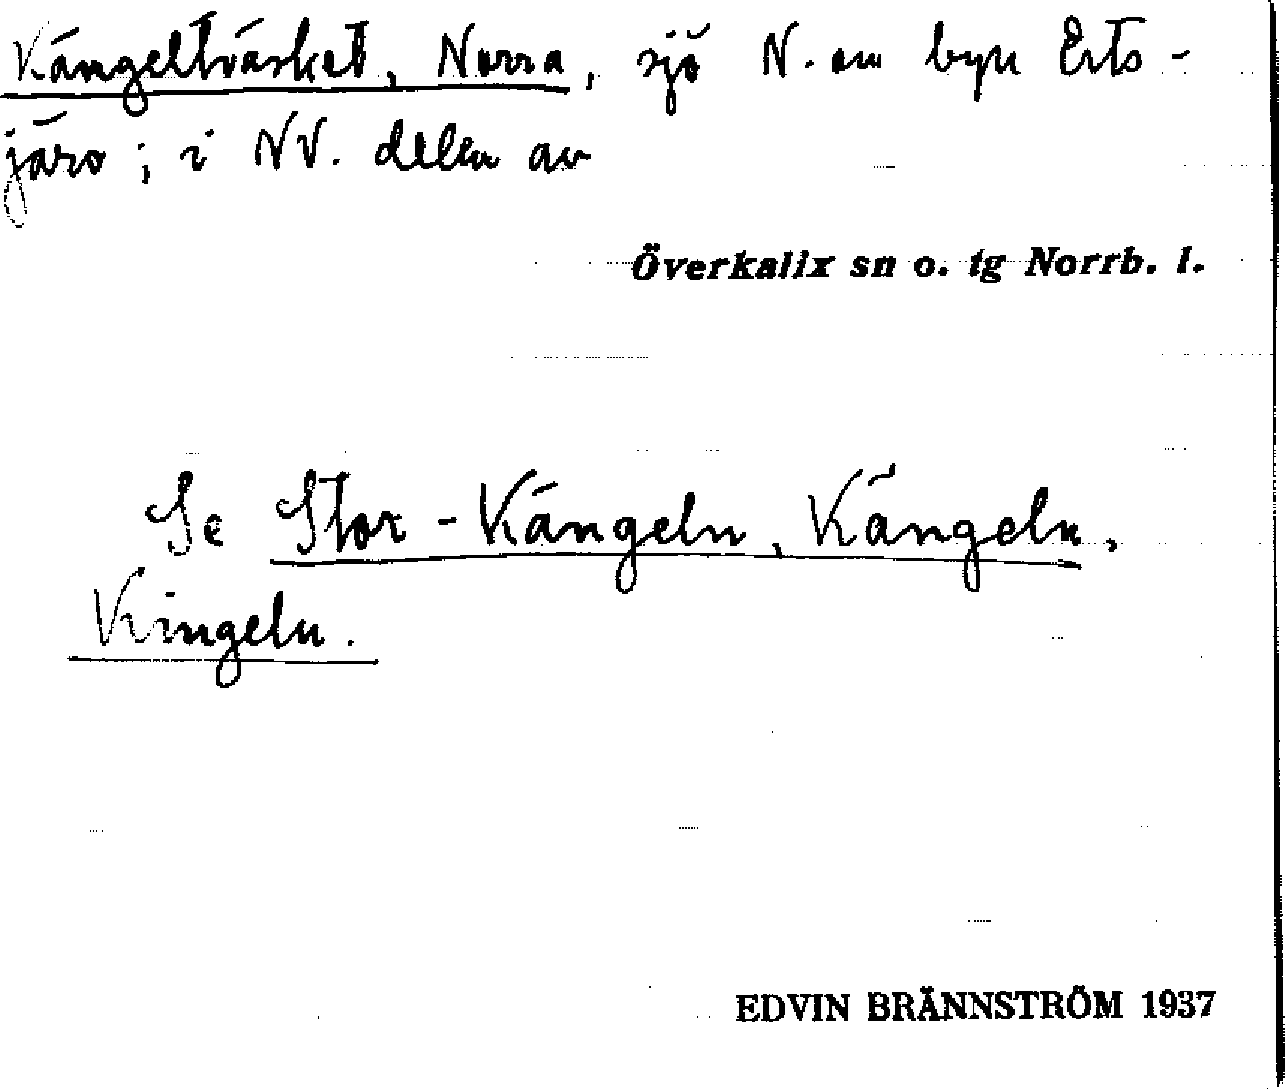 Kängelträsket, Norra, sjö N. om byn Ets-
järv; i NV. delen av
Överkalix sn o. tg Norrb. l.
Se Stor-Kängeln, Kängeln,
Kingeln.
EDVIN BRÄNNSTRÖM 1937